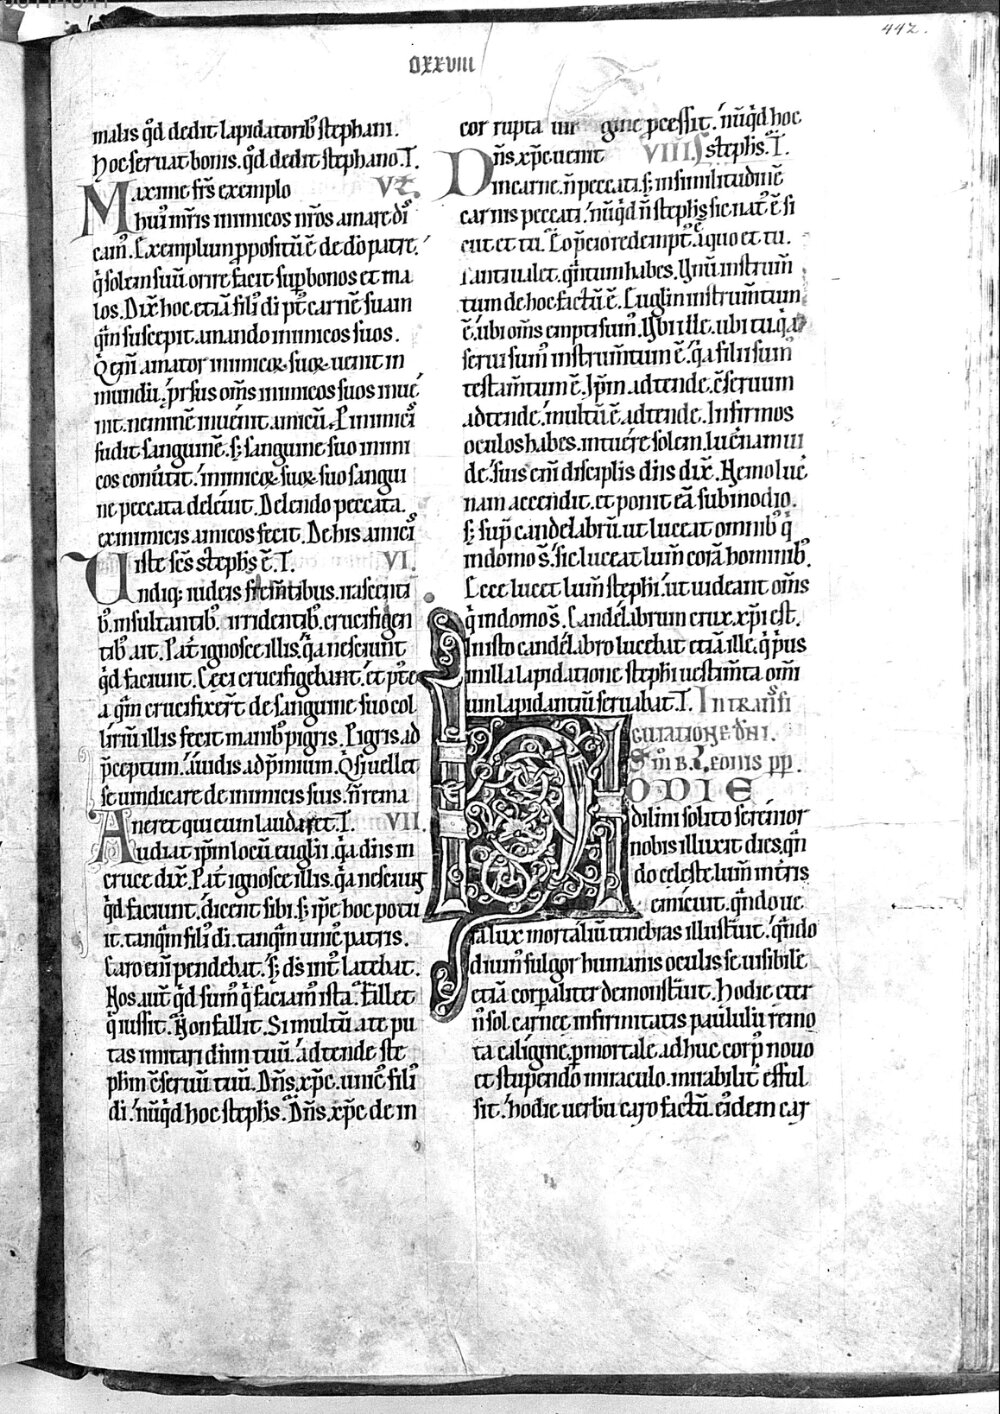 442.
CXXVIII
malis q̄d dedit lapidatorib; stephani.
hoc seruat bonis. q̄d dedit stephano. T.
Maxime fr̄s exemplo V
huiꝰ mr̄is inimicos nr̄os amare di
cam̄. Exemplum ꝓpositū ē de dō patre.
q̄ solem suū oriri facit sup bonos et ma
los. Dix̄ hoc etiā filiꝰ di pꝰt carnē suam
q̄m suscepit. amando inimicos suos.
Q̇ enī amator inimicoꝝ suoꝝ uenit in
mundū. prsus om̄s inimicos suos inue
nit. neminē inuenit amicū. P inimicis
fudit sanguinē. s; sanguine suo inimi
cos conūtit. inimicoꝝ suoꝝ suo sangui
ne peccata deleuit. Delendo peccata.
ex inimicis amicos fecit. De his amicis
iste scs̄ stephs̄ ē. T. VI.
Undiq; iudeis frem̄tibus. nascenti
b; insultantib; irridentib; crucifigen
tib; ait. Pat̄ ignosce illis. q̄a nesciunt
q̄d faciunt. Ceci crucifigebant. et pꝰte
a q̄m crucifixer̄t de sanguine suo col
liriū illis fecit manib; pigris. Pigris ad
p̄ceptum. auidis ad p̄mium. Q̇ si uellet
se uindicare de inimicis suis. n̄ rema
neret qui eum laudaret. T. VII.
Audiat ip̄m locū euglīi. q̄a dn̄s in
cruce dix̄. Pat̄ ignosce illis. q̄a nesciunt
q̄d faciunt. dicent sibi. s; ip̄e hoc potu
it. tanq̄m filiꝰ di. tanq̄m unicꝰ patris.
Caro enī pendebat. s; ds̄ intꝰ latebat.
Nos aut̄ q̄d sumꝰ q̄ faciamꝰ ista. Fallet
q̄ iussit. Non fallit. Si multū a te pu
tas imitari dn̄m tuū. adtende ste
phm̄ c̄seruū tuū. Dn̄s xp̄c unicꝰ filiꝰ
di. nūq̄d hoc stephs̄. Dn̄s xp̄c de in
cor rupta uir gine pcessit. nūq̄d hoc
stephs̄. T. VIII.
Dn̄s xp̄c uenit
in carne. n̄ peccati. s; in similitudinē
carnis peccati. nūq̄d n̄ stephs̄ sic natꝰ ē si
cut et tu. Eo p̄cio redemptꝰ. a quo et tu.
Tanti ualet. q̄ntum habes. Unū instrum̄
tum de hoc factū ē. Euglīm instrum̄tum
ē. ubi om̄s empti sumꝰ. Ubi ille. ubi tu. q̄a
serui sumꝰ instrum̄tum ē. q̄a filii sumꝰ
testam̄tum ē. Ip̄m adtende. c̄seruum
adtende. multū ē adtende. Infirmos
oculos habes. intuere solem. lucernam ui
de. suis enī discip̄lis dn̄s dix̄. Nemo lucer
nam accendit. et ponit eā sub modio.
s; sup̄ candelabrū. ut luceat omnib; q̄
in domo s̄. sic luceat lum̄ corā hominib;.
Ecce lucet lum̄ stephi. ut uideant om̄s
q̄ in domo s̄. Candelabrum crux xp̄i est.
In isto candelabro lucebat etiā ille. q̄ p̄us
in illa lapidatione stephi uestam̄ta om̄i
um lapidantiū seruabat. T. In trans̄fi
guratione dn̄i.
Sm̄ b. Leonis pp̄.
HODIE
dilm̄i solito serenior
nobis illuxit dies. q̄n
do celeste lum̄ in tris
emicuit. q̄ndo ue
ra lux mortaliū tenebras illustrauit. q̄ndo
diuinꝰ fulgor humanis oculis se uisibilē
etiā corpaliter demonstrauit. Hodie eter
nꝰ sol carnee infirmitatis paululū remo
ta caligine. p mortale adhuc corpꝰ nouo
et stupendo miraculo. mirabilit̄ efful
sit. hodie uerbū caro factū. eidem car